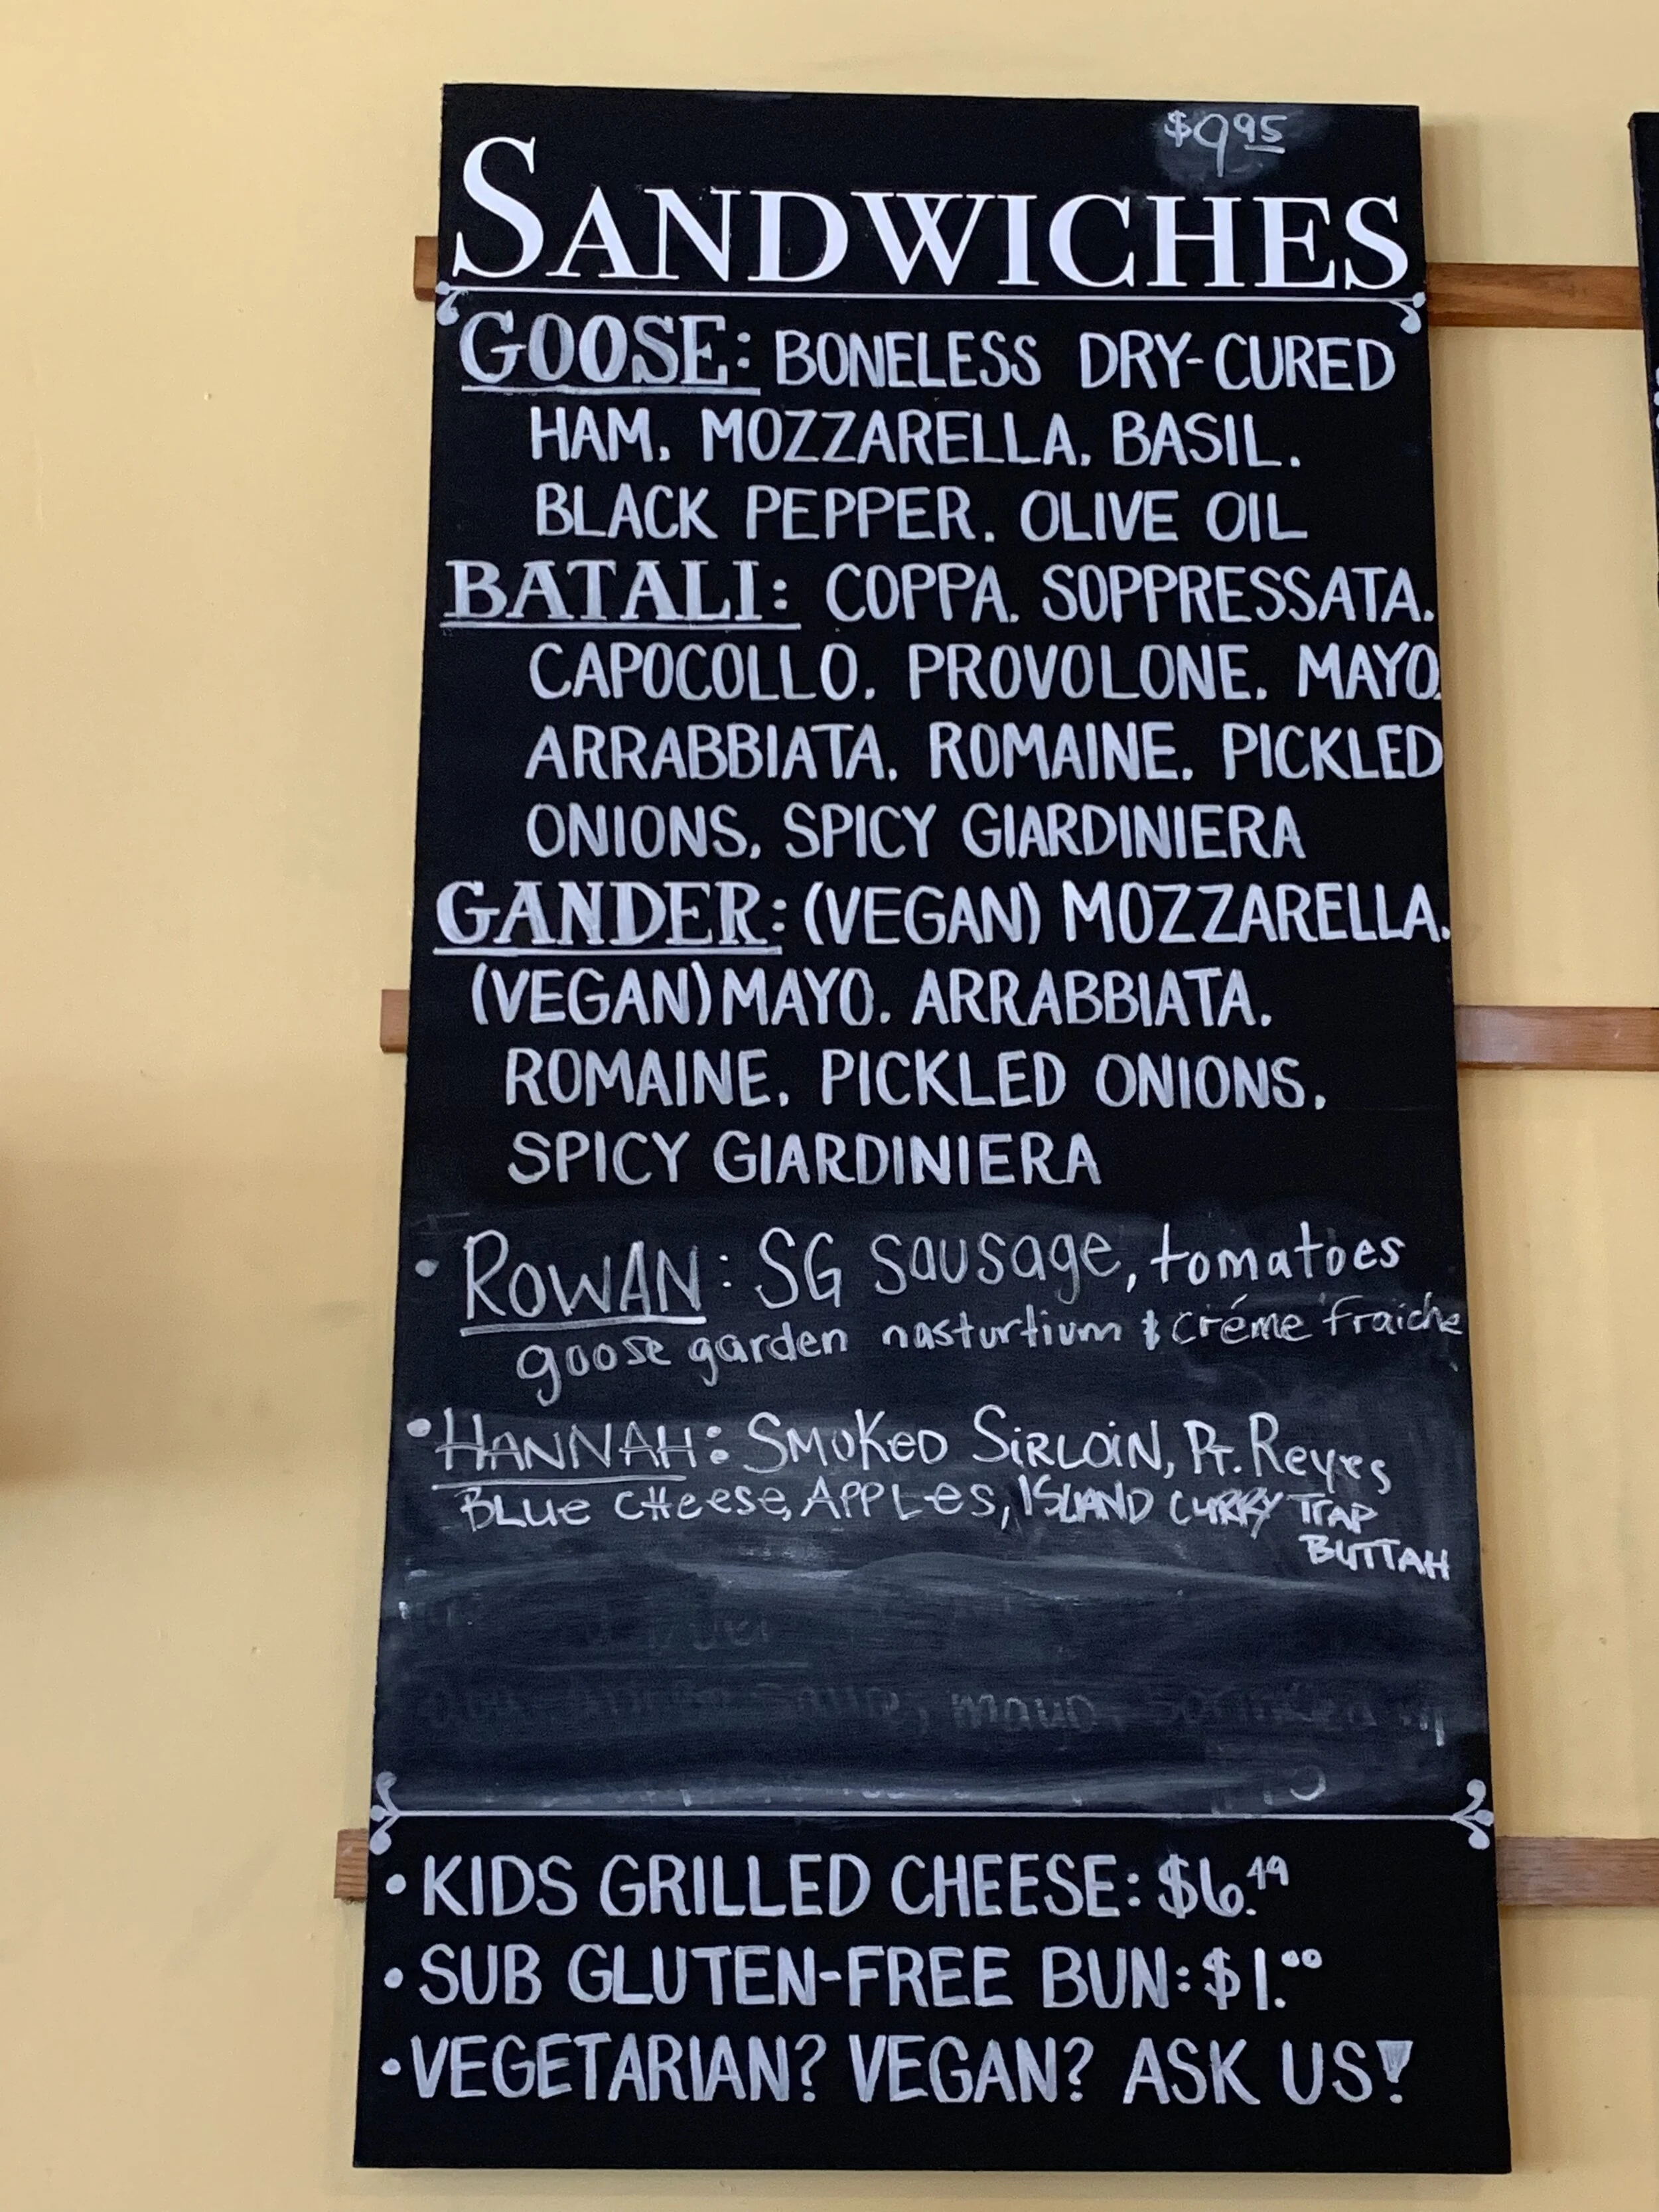 $9.95
SANDWICHES
GOOSE: BONELESS DRY-CURED
HAM, MOZZARELLA, BASIL,
BLACK PEPPER, OLIVE OIL
BATALI: COPPA, SOPPRESSATA,
CAPOCOLLO, PROVOLONE, MAYO,
ARRABBIATA, ROMAINE, PICKLED
ONIONS, SPICY GIARDINIERA
GANDER: (VEGAN) MOZZARELLA,
(VEGAN) MAYO, ARRABBIATA,
ROMAINE, PICKLED ONIONS,
SPICY GIARDINIERA
• ROWAN: SG Sausage, tomatoes
goose garden nasturtium & créme fraiche
• HANNAH: SMOKeD SiRLOiN, PT. Reyes
BLUe CHeese, APPLes, ISLAND CURRY TRAP
BUTTAH
mayo,
• KIDS GRILLED CHEESE: $6.49
• SUB GLUTEN-FREE BUN: $1.00
• VEGETARIAN? VEGAN? ASK US!